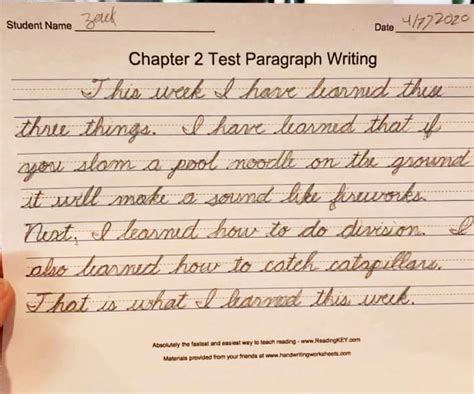 Student Name Zerek Date 4/7/2020
Chapter 2 Test Paragraph Writing
This week I have learned these
three things. I have learned that if
you slam a pool noodle on the ground
it will make a sound like fireworks.
Next, I learned how to do division. I
also learned how to catch catapillars.
That is what I learned this week.
Absolutely the fastest and easiest way to teach reading - www.ReadingKEY.com
Materials provided from your friends at www.handwritingworksheets.com